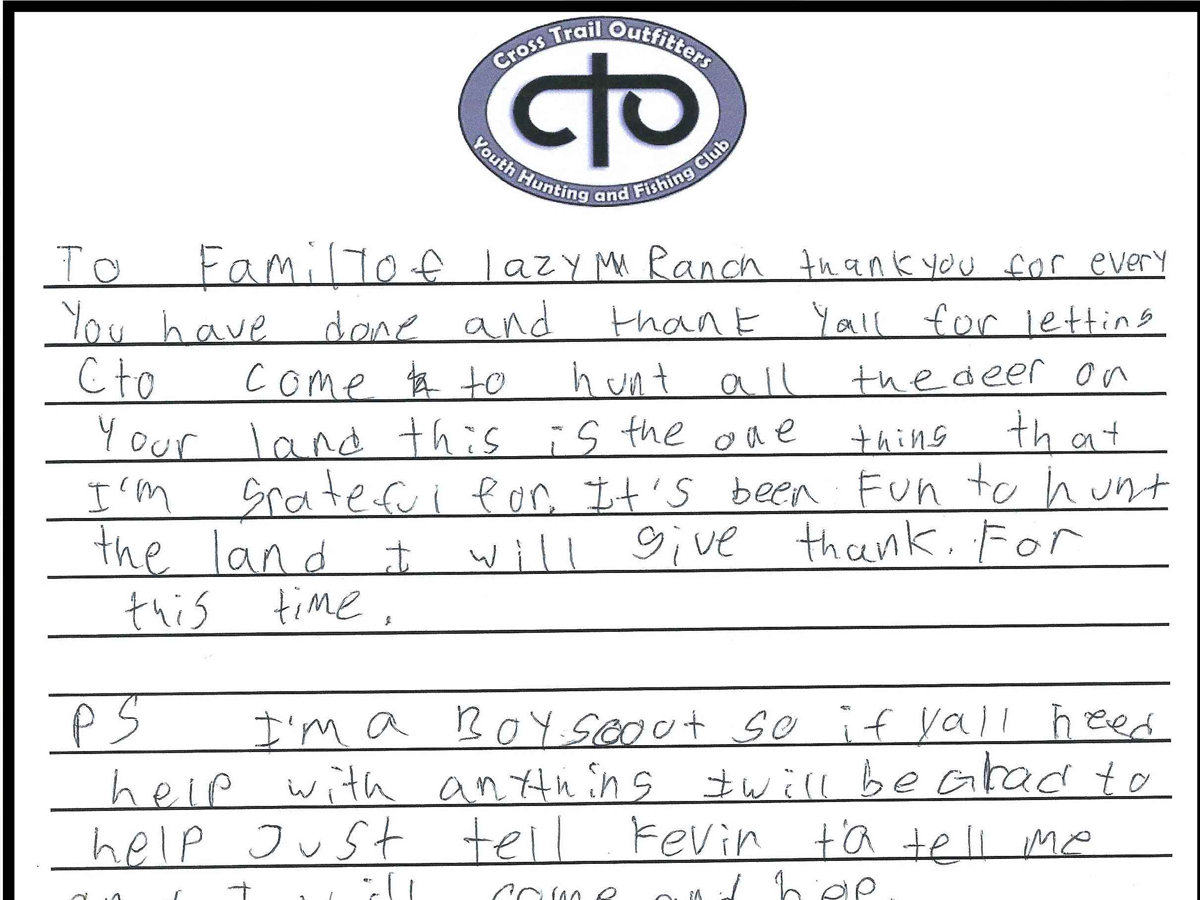 Cross Trail Outfitters
cto
Youth Hunting and Fishing Club
To Family of lazy M Ranch thank you for every
You have done and thank Yall for letting
Cto come to hunt all the deer on
Your land this is the one thing that
I'm grateful for. It's been Fun to hunt
the land I will give thank. For
this time.
PS I'm a Boy scout so if yall need
help with anything I will be Glad to
help Just tell Kevin to tell me
and I will come and hep.